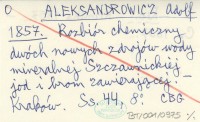 O ALEKSANDROWICZ Adolf
1857. Rozbiór chemiczny
dwóch nowych zdrojów wody
mineralnej Szczawnickiej
jod i brom zawierającej –
Kraków. Ss. 44, 8° CBG